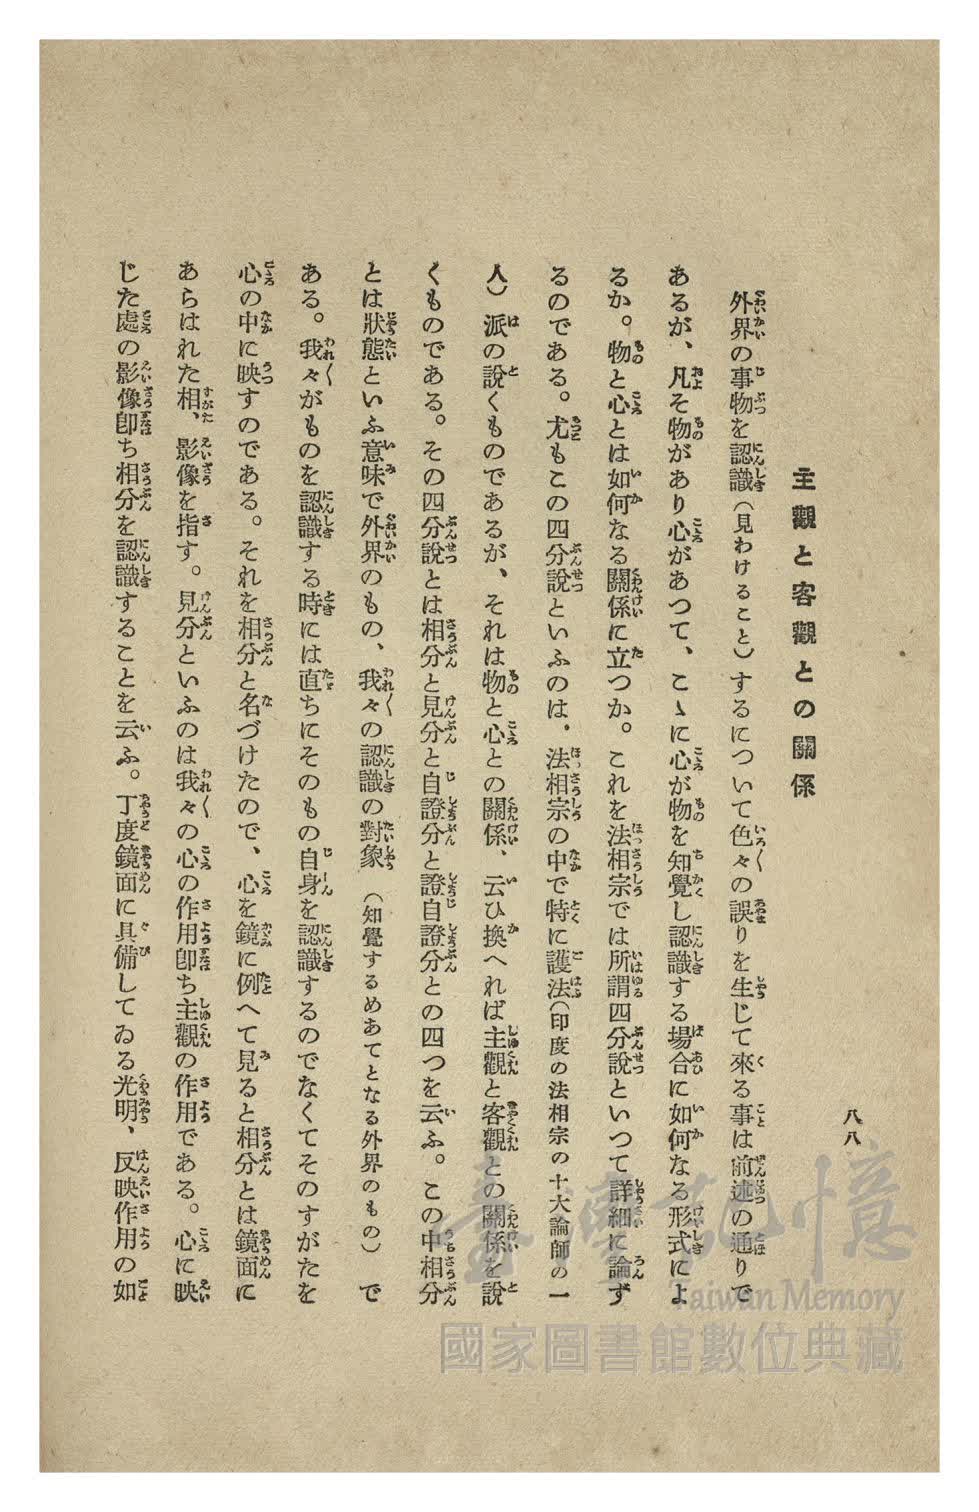 八八
主觀と客觀との關係
外界の事物を認識(見わけること)するについて色々の誤りを生じて來る事は前述の通りで
あるが、凡そ物があり心があつて、こゝに心が物を知覺し認識する場合に如何なる形式によ
るか。物と心とは如何なる關係に立つか。これを法相宗では所謂四分說といつて詳細に論ず
るのである。尤もこの四分說といふのは、法相宗の中で特に護法(印度の法相宗の十大論師の一
人)派の說くものであるが、それは物と心との關係、云ひ換へれば主觀と客觀との關係を說
くものである。その四分說とは相分と見分と自證分と證自證分との四つを云ふ。この中相分
とは狀態といふ意味で外界のもの、我々の認識の對象(知覺するめあてとなる外界のもの)で
ある。我々がものを認識する時には直ちにそのもの自身を認識するのでなくてそのすがたを
心の中に映すのである。それを相分と名づけたので、心を鏡に例へて見ると相分とは鏡面に
あらはれた相、影像を指す。見分といふのは我々の心の作用卽ち主觀の作用である。心に映
じた處の影像卽ち相分を認識することを云ふ。丁度鏡面に具備してゐる光明、反映作用の如
臺灣記憶
Taiwan Memory
國家圖書館數位典藏